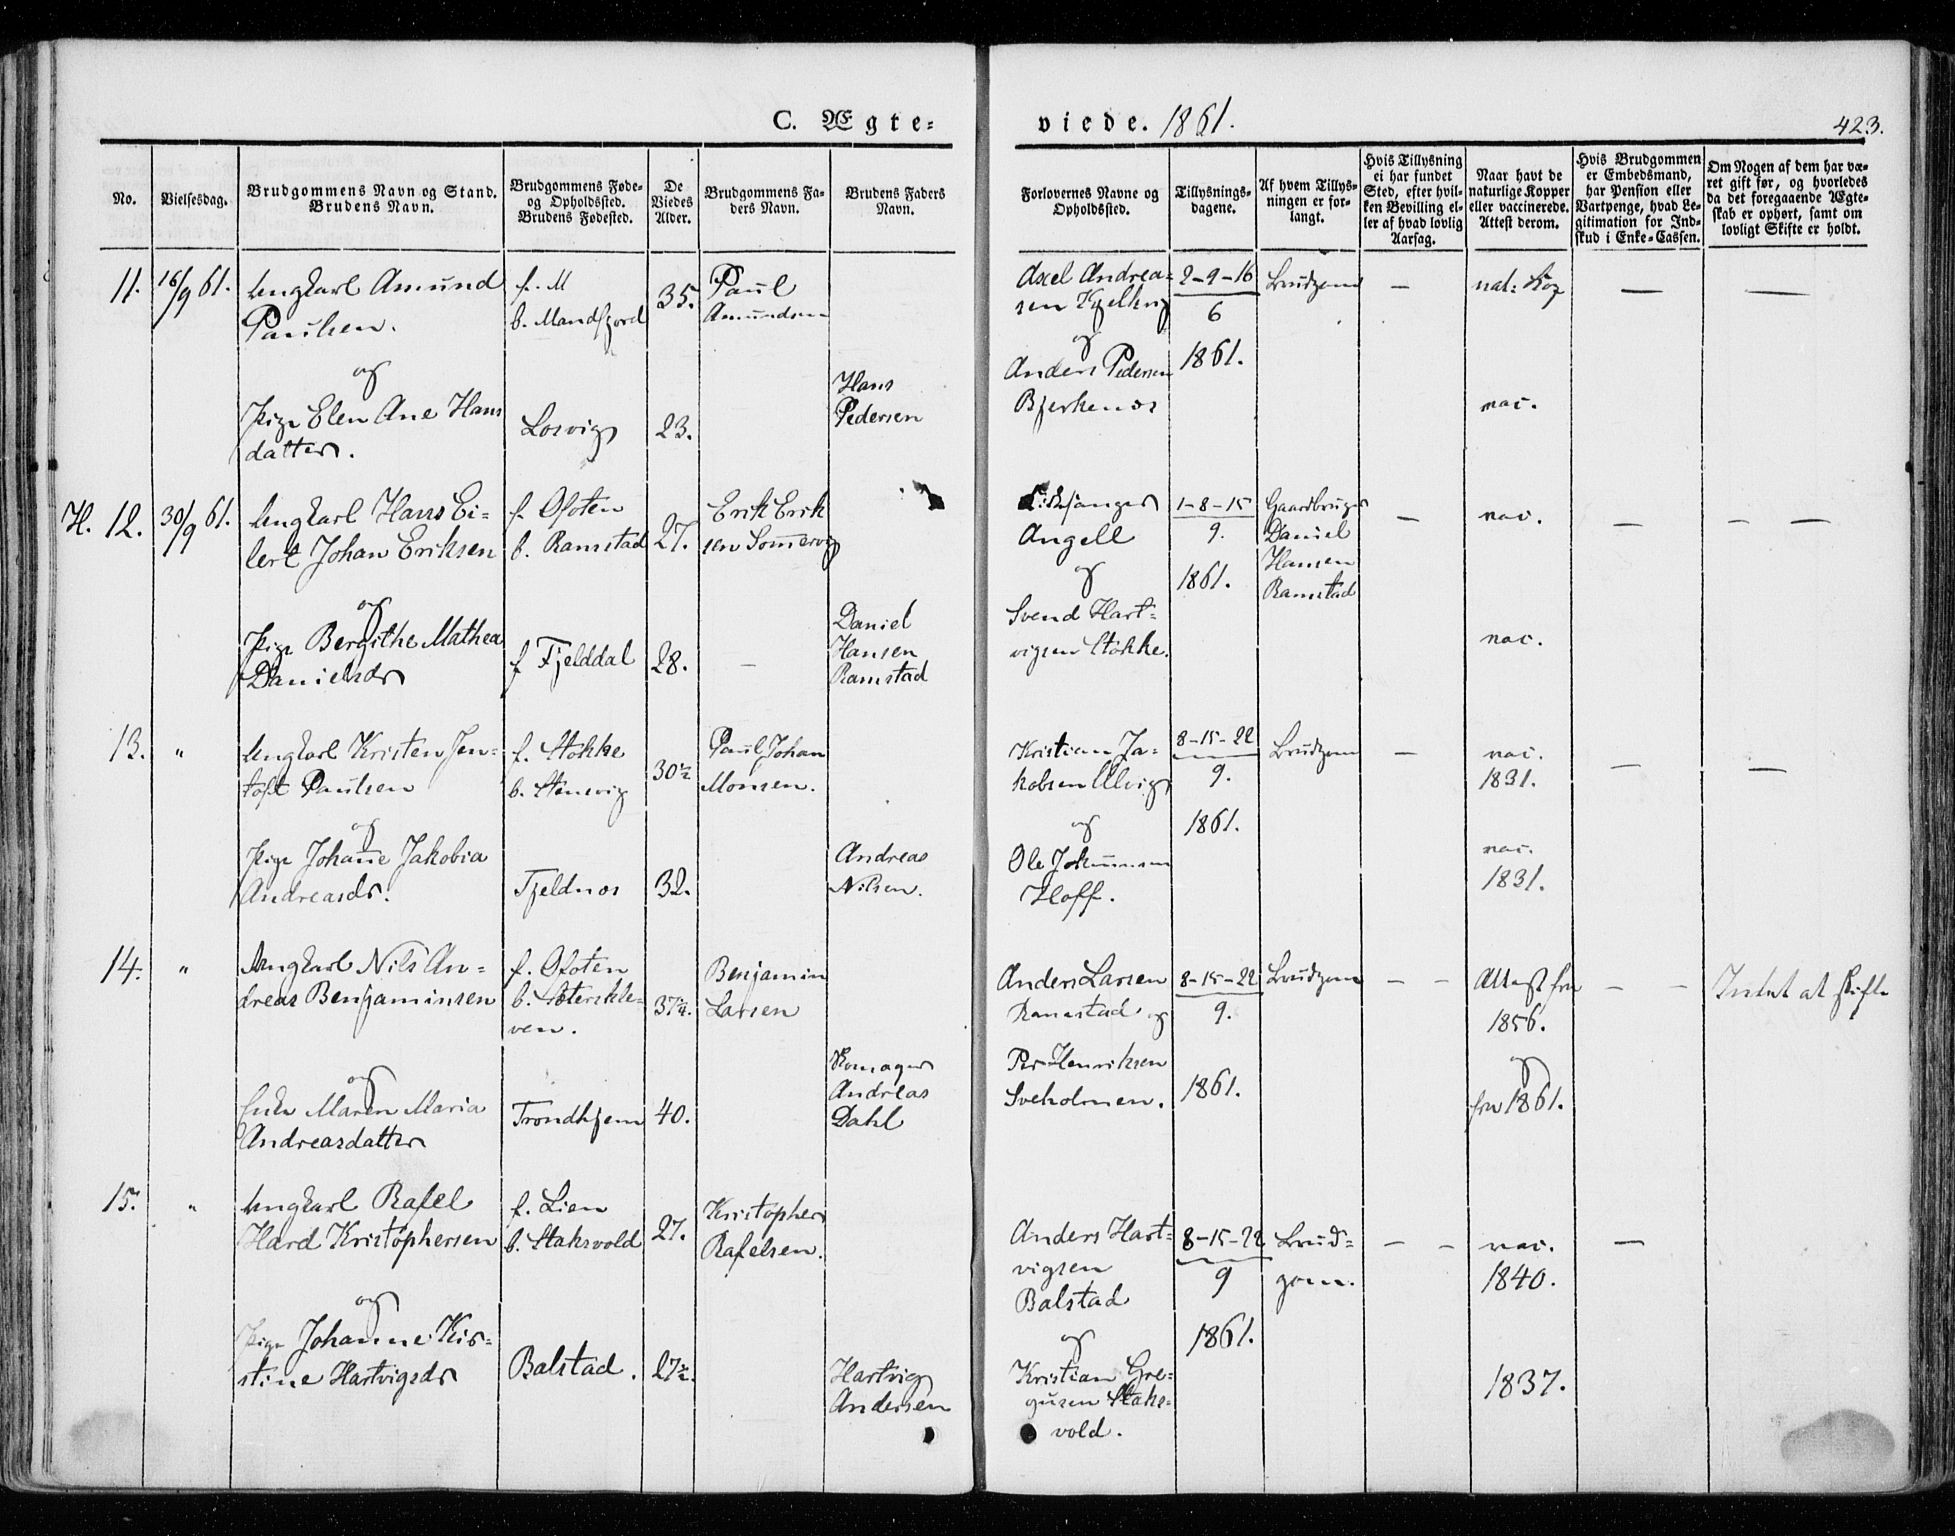 C. Ægte-
viede. 1861.
423.
No.
Vielsesdag.
Brudgommens Navn og Stand.
Brudens Navn.
Brudgommens Føde-
og Opholdssted.
Brudens Fødested.
De
Viedes
Alder.
Brudgommens Fa-
ders Navn.
Brudens Faders
Navn.
Forlovernes Navne og
Opholdssted.
Tillysnings-
dagene.
Af hvem Tillys-
ningen er for-
langt.
Hvis Tillysning
ei har fundet
Sted, efter hvil-
ken Bevilling el-
ler af hvad lovlig
Aarsag.
Naar havt de
naturlige Kopper
eller vaccinerede.
Attest derom.
Hvis Brudgommen
er Embedsmand,
har Pension eller
Vartpenge, hvad Le-
gitimation for Ind-
skud i Enke-Cassen.
Om Nogen af dem har væ-
ret gift før, og hvorledes
da det foregaaende Ægte-
skab er ophørt, samt om
lovligt Skifte er holdt.
11.
16/9 61.
Ungkarl Amund
Paulsen.
og
Pige Elen Ane Hans
datter.
f. M
b. Mandfjord
Losvig
35.
23.
Paul
Amundsen
Hans
Pedersen
Axel Andrea-
sen Kjelkvig
og
Anders Pedersen
Bjerkenos
2-9-16
6
1861.
Brudgom
—
nat: Kop
vac.
—
—
H. 12.
30/9 61.
Ungkarl Hans Ei-
lert Johan Eriksen
og
Pige Bergithe Mathea
Danielsdr
f. Ofoten
b. Ramstad
f Fjelddal
27.
28.
Erik Erik
sen Somervig
—
Daniel
Hansen
Ramstad
Angell
og
Svend Hart-
vigsen Stokke.
1-8-15
9.
1861.
Gaardbruger
Daniel
Hansen
Ramstad
—
vac.
vac.
—
— —
13.
"
Ungkarl Kristen Jen-
toft Paulsen
og
Pige Johane Jakobia
Andreasdr.
f. Stokke
b. Stensvig
Fjeldnos
30½
32.
Paul Johan
Monsen.
Andreas
Nilsen.
Kristian Ja-
kobsen Ulvig
og
Ole Johannesen
Hoff.
8-15-22
9.
1861.
Brudgom
—
vac.
1831.
vac.
1831.
—
—
14.
"
Ungkarl Nils An-
dreas Benjaminsen
og
Enke Maren Maria
Andreasdatter
f. Ofoten
b. Sæterskle-
ven.
Trondhjem
37¼.
40.
Benjamin
Larsen
Andreas
Dahl
Anders Larsen
Ramstad og
Per Henriksen
Sveholmen.
8-15-22
9.
1861.
Brudgom
— —
Attest fra
1856.
og
fra 1861.
— —
Intet at skifte
15.
"
Ungkarl Rafel
Hard Kristophersen
og
Pige Johanne Kir-
stine Hartvigsdr
f. Lien
b. Staksvold
Balstad.
27.
27½.
Kristopher
Rafelsen.
Hartvig
Andersen
Anders Hart-
vigsen
Balstad
og
Kristian Gre-
gusen Staks-
vold.
8-15-22
9
1861.
Brud-
gom.
— —
vac.
1840.
1837.
—